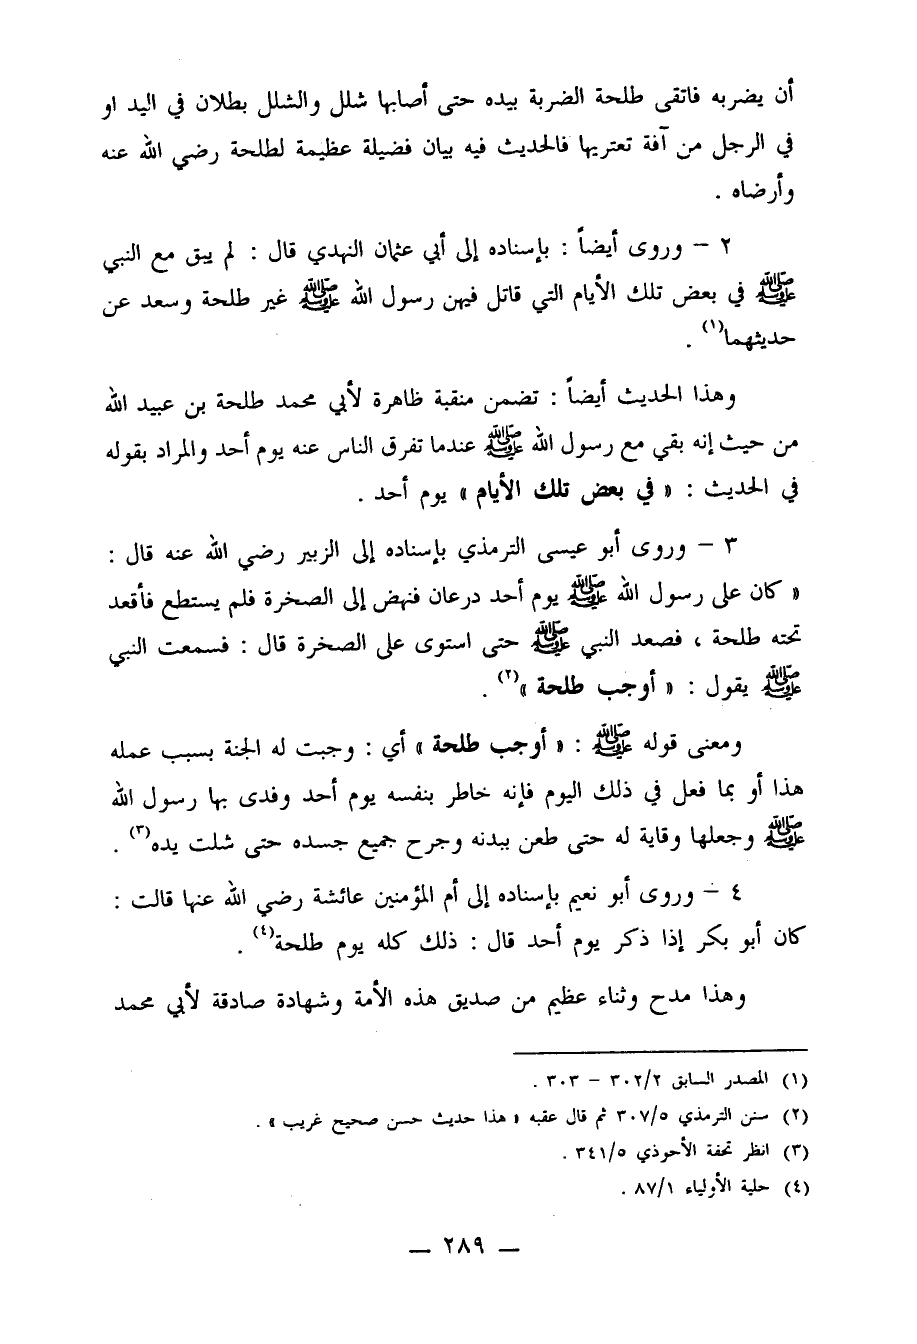 أن يضربه فاتقى طلحة الضربة بيده حتى أصابها شلل والشلل بطلان في اليد او
في الرجل من آفة تعتريها فالحديث فيه بيان فضيلة عظيمة لطلحة رضي الله عنه
وأرضاه .
٢ – وروى أيضاً : بإسناده إلى أبي عثمان النهدي قال : لم يبق مع النبي
ﷺ في بعض تلك الأيام التي قاتل فيهن رسول الله ﷺ غير طلحة وسعد عن
حديثهما(١) .
وهذا الحديث أيضاً : تضمن منقبة ظاهرة لأبي محمد طلحة بن عبيد الله
من حيث إنه بقي مع رسول الله ﷺ عندما تفرق الناس عنه يوم أحد والمراد بقوله
في الحديث : « في بعض تلك الأيام » يوم أحد .
٣ – وروى أبو عيسى الترمذي بإسناده إلى الزبير رضي الله عنه قال :
« كان على رسول الله ﷺ يوم أحد درعان فنهض إلى الصخرة فلم يستطع فأقعد
تحته طلحة ، فصعد النبي ﷺ حتى استوى على الصخرة قال : فسمعت النبي
ﷺ يقول : « أوجب طلحة »(٢) .
ومعنى قوله ﷺ : « أوجب طلحة » أي : وجبت له الجنة بسبب عمله
هذا أو بما فعل في ذلك اليوم فإنه خاطر بنفسه يوم أحد وفدى بها رسول الله
ﷺ وجعلها وقاية له حتى طعن ببدنه وجرح جميع جسده حتى شلت يده(٣) .
٤ – وروى أبو نعيم بإسناده إلى أم المؤمنين عائشة رضي الله عنها قالت :
كان أبو بكر إذا ذكر يوم أحد قال : ذلك كله يوم طلحة(٤) .
وهذا مدح وثناء عظيم من صديق هذه الأمة وشهادة صادقة لأبي محمد
(١) المصدر السابق ٣٠٢/٢ – ٣٠٣ .
(٢) سنن الترمذي ٣٠٧/٥ ثم قال عقبه « هذا حديث حسن صحيح غريب » .
(٣) انظر تحفة الأحوذي ٣٤١/٥ .
(٤) حلية الأولياء ٨٧/١ .
— ٢٨٩ —